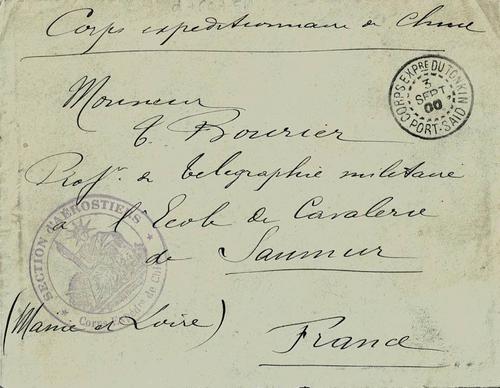 Corps expeditionnaire de Chine
CORPS EXPRE DU TONKIN
3
SEPT
00
PORT-SAID
Monsieur
Bourier
Profr. de telegraphie militaire
a l'Ecole de Cavalerie
de Saumur
SECTION D'AEROSTIERS
Corps de Chine
(Maine et Loire)
France